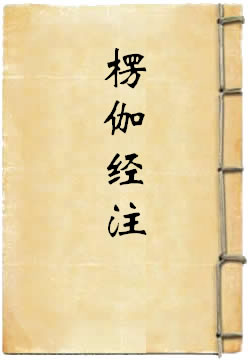 楞伽经注